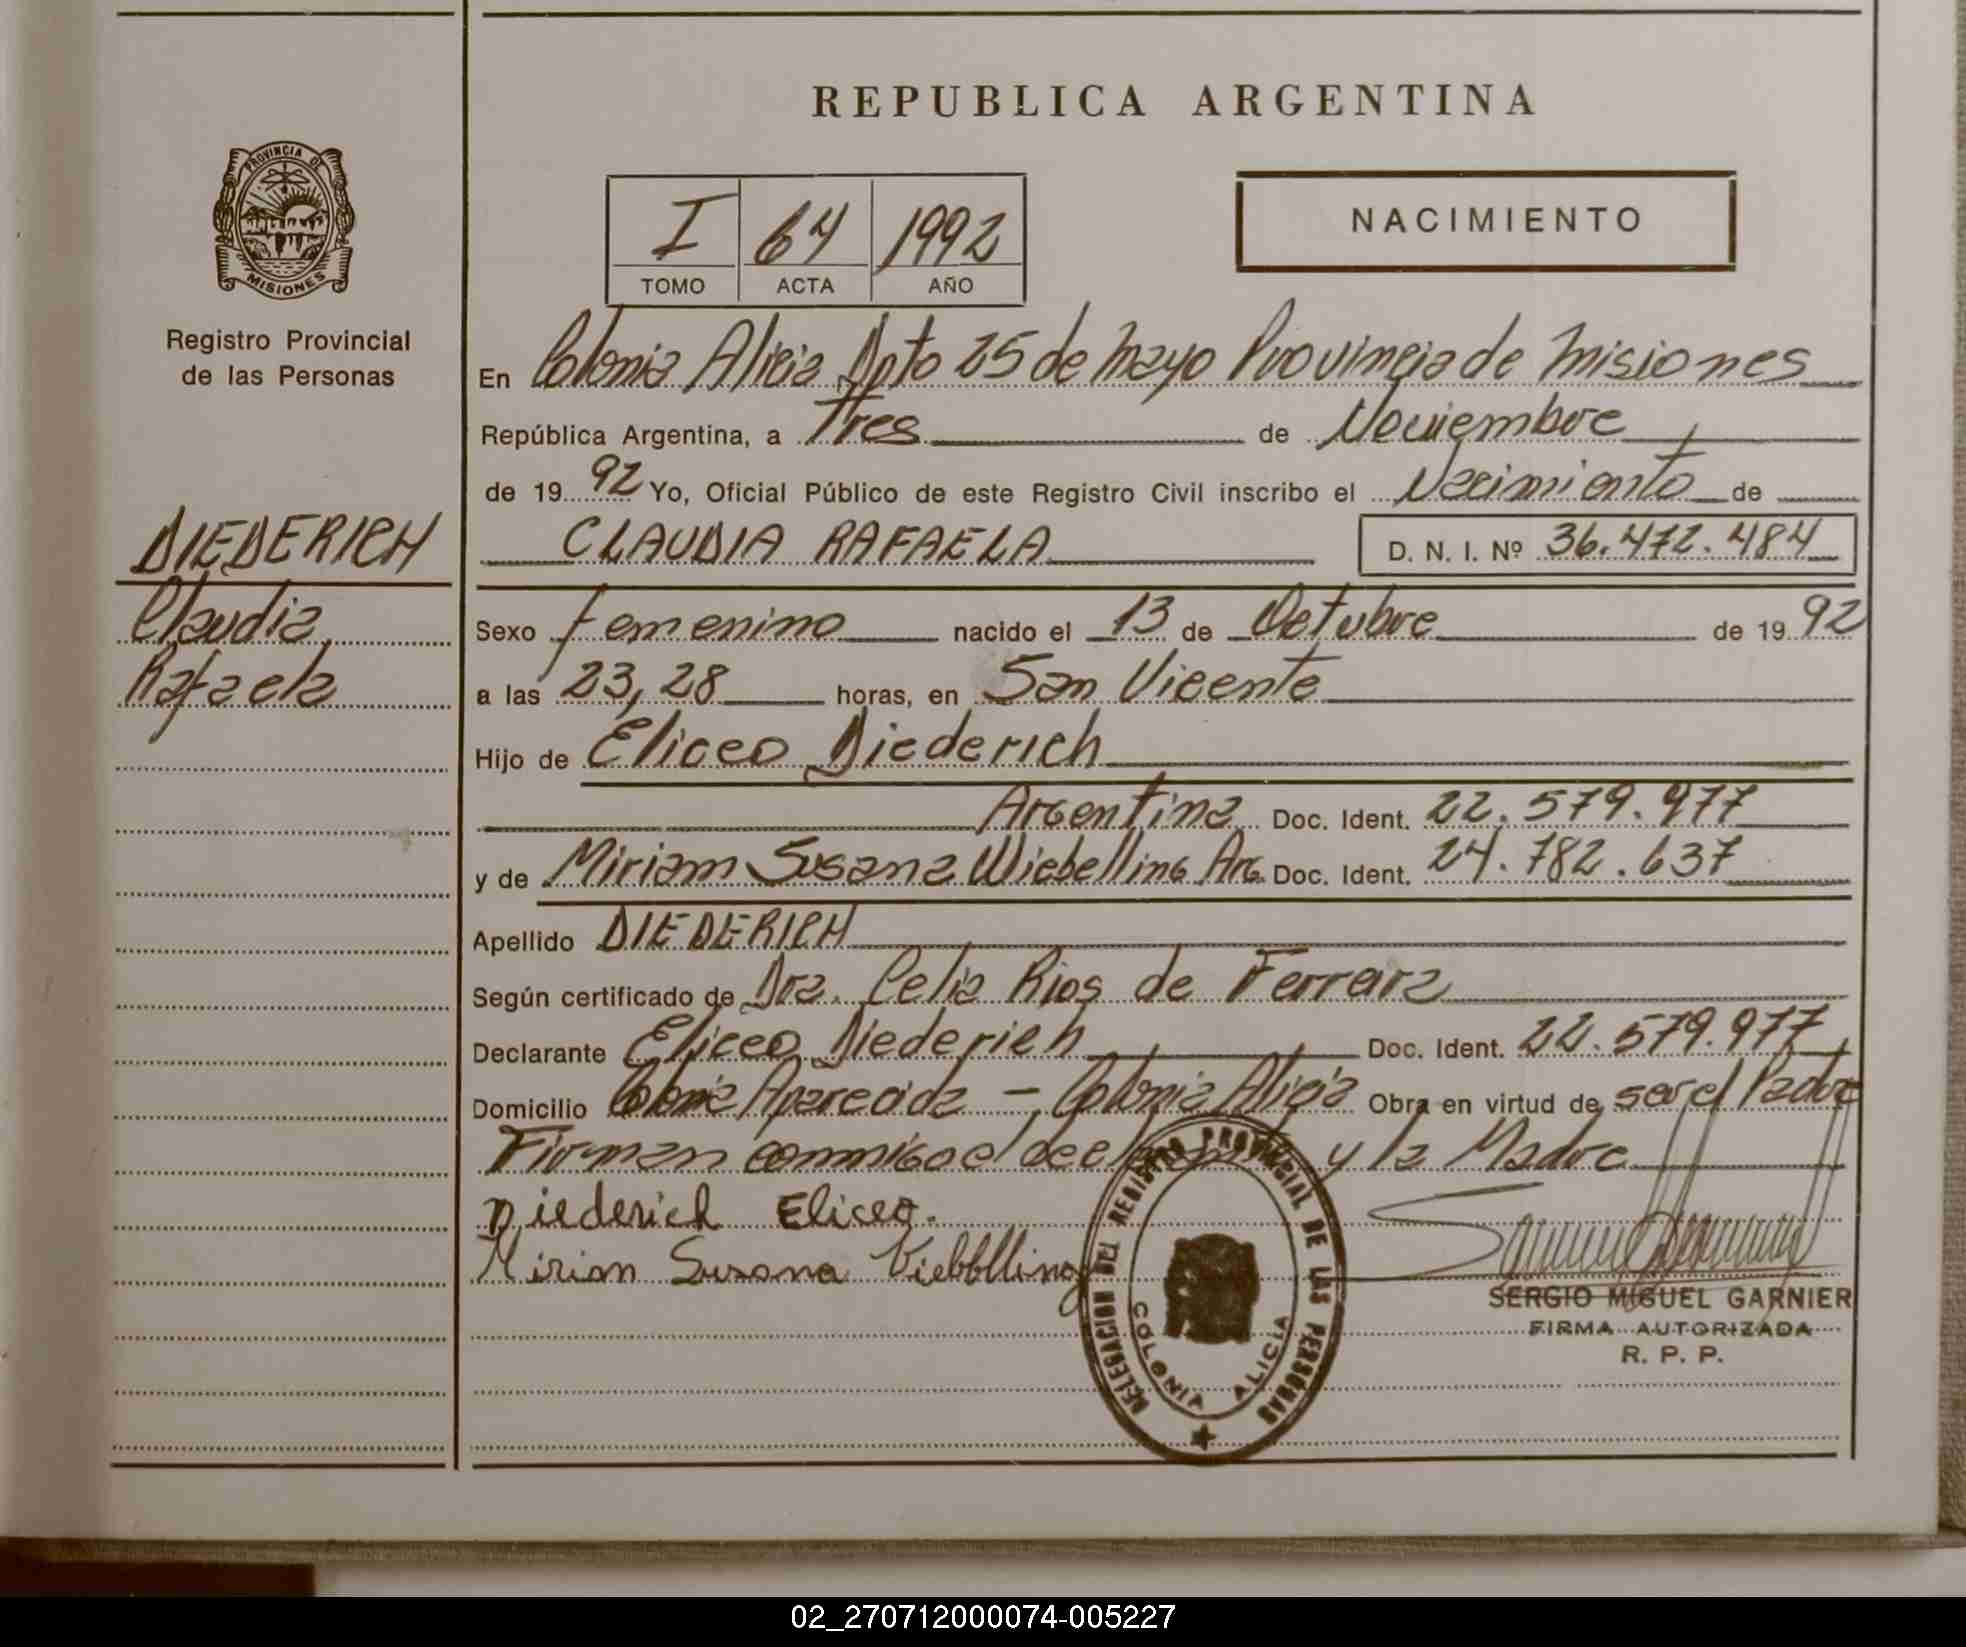 REPUBLICA ARGENTINA
PROVINCIA DE
MISIONES
Registro Provincial
de las Personas
DIEDERICH
Claudia
Rafaela
I 64 1992
TOMO ACTA AÑO
NACIMIENTO
En Colonia Alicia Dpto 25 de Mayo Provincia de Misiones
República Argentina, a Tres de Noviembre
de 1992 Yo, Oficial Público de este Registro Civil inscribo el Nacimiento de
CLAUDIA RAFAELA D. N. I. Nº 36.472.484
Sexo femenino nacido el 13 de Octubre de 1992
a las 23,28 horas, en San Vicente
Hijo de Eliceo Diederich
Argentina Doc. Ident. 22.579.977
y de Miriam Susana Wiebelling Arg. Doc. Ident. 24.782.637
Apellido DIEDERICH
Según certificado de Dra. Celia Rios de Ferrara
Declarante Eliceo Diederich Doc. Ident. 22.579.977
Domicilio Colonia Aparecida - Colonia Alicia Obra en virtud de ser el Padre
Firman conmigo el y la Madre
Diederich Eliceo.
Mirian Susana
DELEGACION DEL REGISTRO PROVINCIAL DE LAS PERSONAS
COLONIA ALICIA
SERGIO MIGUEL GARNIER
FIRMA AUTORIZADA
R. P. P.
02_270712000074-005227